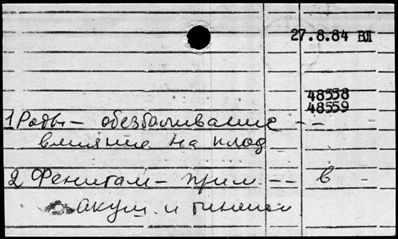 27.8.84 ВЛ
48558
48559
1 Роды - обезболивание --
влияние на плод
2 Фенигам - прим -- в
акуш. и гинек